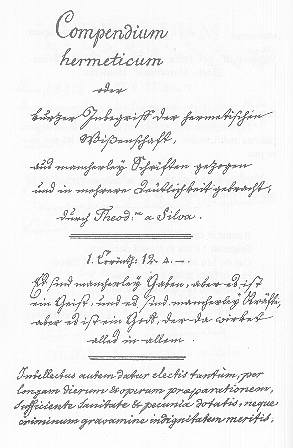 Compendium
hermeticum
oder
kurzer Inbegriff der hermetischen
Wißenschaft,
aus mancherley Schriften gezogen
und in mehrere Deutlichkeit gebracht,
durch Theod.m a Silva.
1. Corinth: 12. 4. —.
Es sind mancherley Gaben, aber es ist
ein Geist, und es sind mancherley Kräfte,
aber es ist ein Gott, der da wirket
alles in allem.
Intellectus autem datur electis tantum, per
longam dierum & operum præparationem,
sufficiente sanitate & pecunia dotatis, neque
criminum gravamine indignitatem meritis.